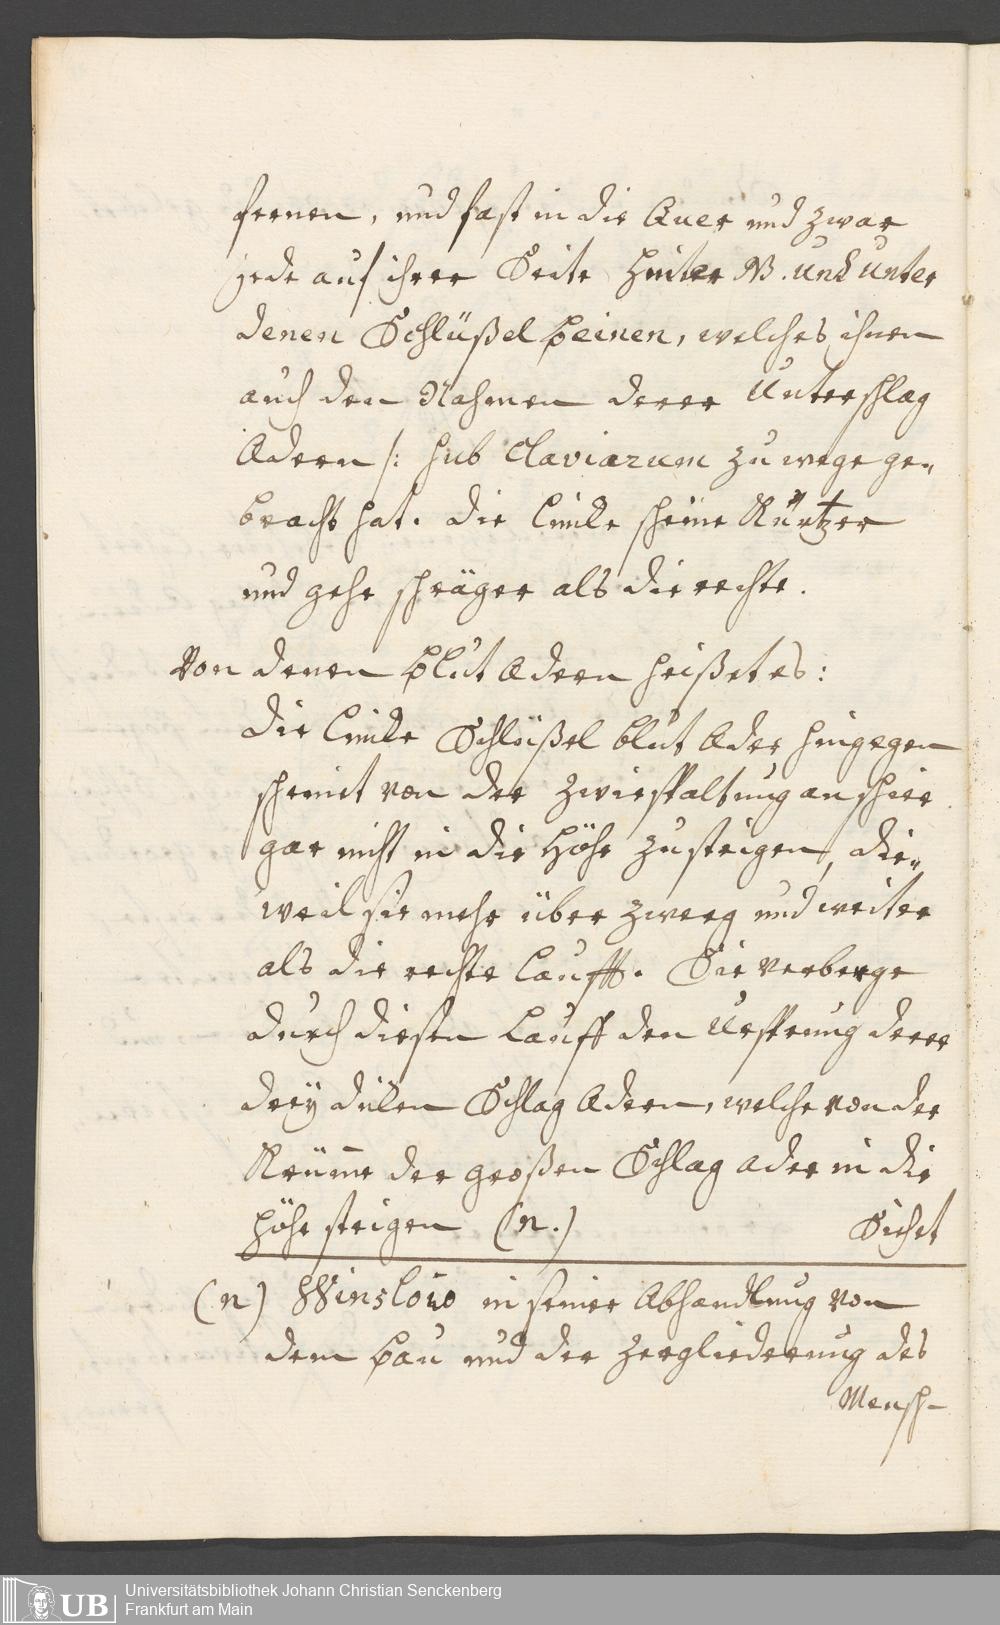 fernen, und fast in die Quer und zwar
jede auf ihrer Seite hinter NB. und unter
denen Schlüßel beinen, welches ihnen
auch den Nahmen derer Unterschlag
Adern /: sub Claviarum zu wege ge„
bracht hat. die lincke scheine Kürtzer
und gehe schräger als die rechte.
Von denen blut Adern heißet es:
die lincke Schlüßel blut Ader hingegen
scheinet von der zwiespaltung an schier
gar nicht in die höhe zu steigen, die„
weil sie mehr über zwerg und weiter
als die rechte laufft. Sie verberge
durch diesen lauff den Ursprung derer
dreÿ Schlag Adern, welche von der
Krüm̄e der großen Schlag ader in die
höhe steigen (n.)
Siehet
(n) Winslow in seiner Abhandlung von
dem bau und der zergliederung des
Mensch-
Universitätsbibliothek Johann Christian Senckenberg
Frankfurt am Main
UB